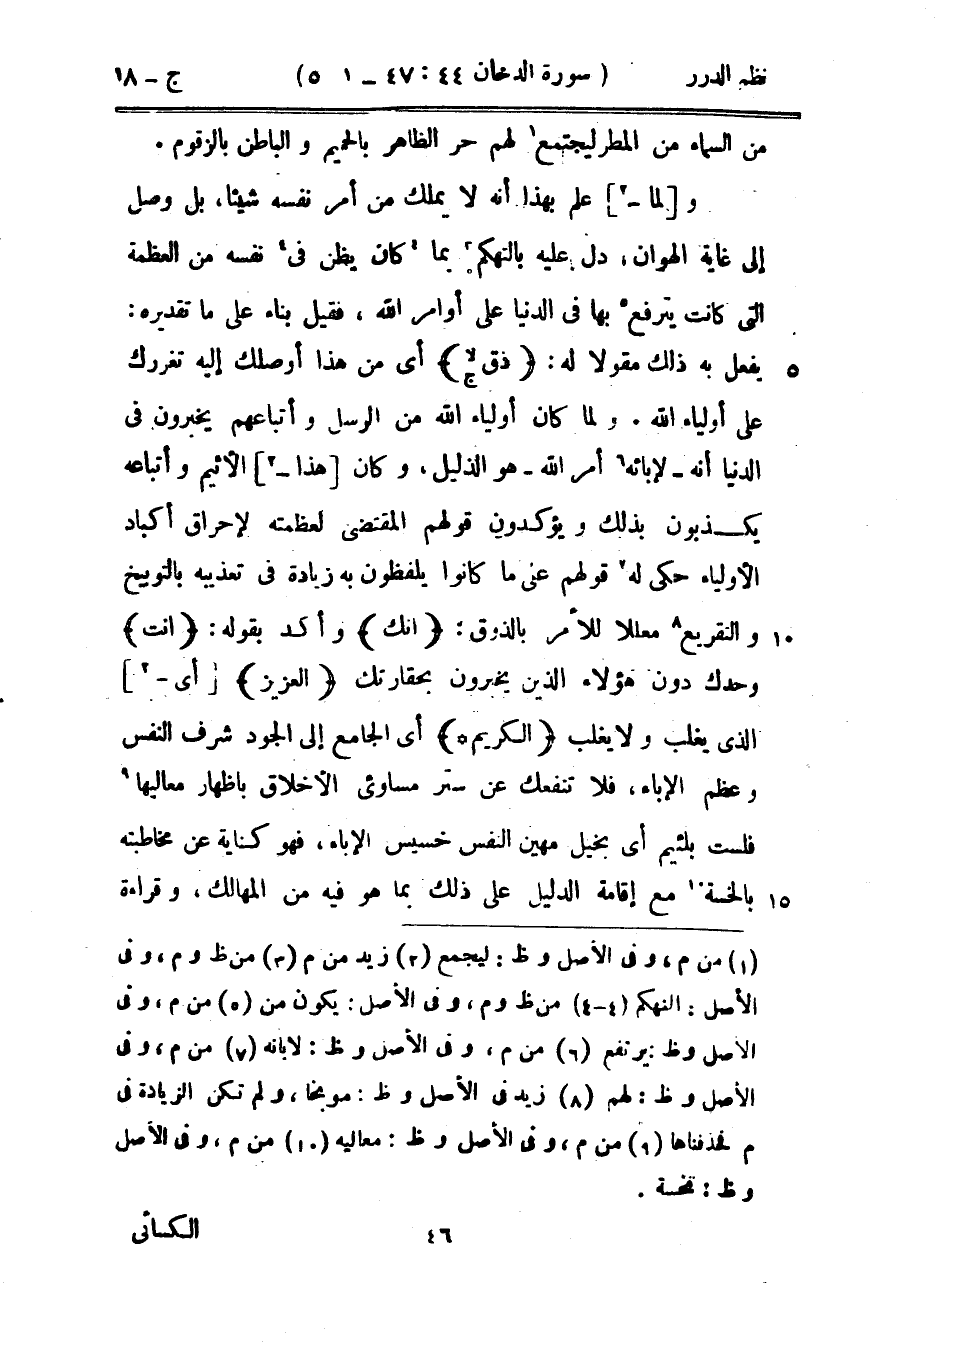 نظم الدرر ( سورة الدخان ٤٤ : ٤٧ – ٥١ ) ج – ١٨
من السماء من المطر ليجتمع١ لهم حر الظاهر بالحميم و الباطن بالزقوم .
و [ لما –٢ ] علم بهذا أنه لا يملك من أمر نفسه شيئا، بل وصل
إلى غاية الهوان، دل عليه بالتهكم٣ بما ٤كان يظن فى٤ نفسه من العظمة
التى كانت يترفع٥ بها فى الدنيا على أوامر الله ، فقيل بناء على ما تقديره :
يفعل به ذلك مقولا له : ﴿ ذق لا ج ﴾ أى من هذا أوصلك إليه تغررك ٥
على أولياء الله . و لما كان أولياء الله من الرسل و أتباعهم يخبرون فى
الدنيا أنه – لإبائه٦ أمر الله – هو الذليل، و كان [ هذا –٢ ] الأثيم و أتباعه
يكـذبون بذلك و يؤكدون قولهم المقتضى لعظمته لإحراق أكباد
الأولياء حكى له٧ قولهم على ما كانوا يلفظون به زيادة فى تعذيبه بالتوبيخ
و التقريع٨ معللا للأمر بالذوق : ﴿ انك ﴾ و أكد بقوله : ﴿ انت ﴾ ١٠
وحدك دون هؤلاء الذين يخبرون بحقارتك ﴿ العزيز ﴾ [ أى –٢ ]
الذى يغلب و لا يغلب ﴿ الكريم ه ﴾ أى الجامع إلى الجود شرف النفس
و عظم الإباء، فلا تنفعك عن ستر مساوئى الأخلاق باظهار معاليها٩
فلست بلئيم أى بخيل مهين النفس خسيس الإباء، فهو كناية عن مخاطبته
بالخسة١٠ مع إقامة الدليل على ذلك بما هو فيه من المهالك، و قراءة ١٥
(١) من م، و فى الأصل و ظ : ليجمع (٢) زيد من م (٣) من ظ و م، و فى
الأصل : النهكم (٤–٤) من ظ و م، و فى الأصل : يكون من (٥) من م، و فى
الأصل و ظ : يرتفع (٦) من م، و فى الأصل و ظ : لابانه (٧) من م، و فى
الأصل و ظ : لهم (٨) زيد فى الأصل و ظ : موبخا، و لم تكن الزيادة فى
م فحذفناها (٩) من م، و فى الأصل و ظ : معاليه (١٠) من م، و فى الأصل
و ظ : نخسة .
٤٦ الكسائى